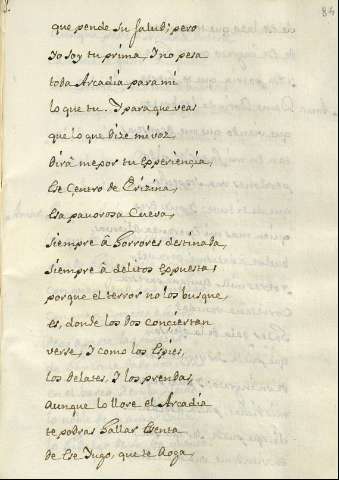 84
que pende su salud; pero
Yo soy tu prima, I no pesa
toda Arcadia para mi
lo que tu. Y para que veas
que lo que dize mi voz
dirâ mejor tu esperiençia,
Ese Centro de Ericina,
Esa pavorosa Cueva,
siempre â horrores destinada,
siempre â delitos espuesta;
porque el terror no los busque,
es, donde los dos conciertan
verse, I como los Espies,
los delates, I los prendas,
aunque lo llore el Arcadia
te podras hallar Esenta
de Ese Iugo, que te aoga,